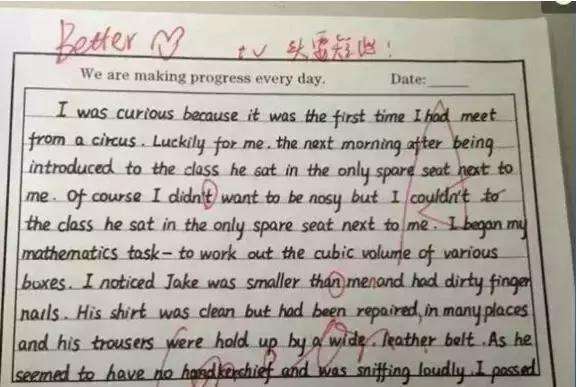 Better
tv 头要短些!
We are making progress every day. Date:
I was curious because it was the first time I had meet
from a circus. Luckily for me. the next morning after being
introduced to the class he sat in the only spare seat next to
me. Of course I didn't want to be nosy but I couldn't to
the class he sat in the only spare seat next to me. I began my
mathematics task- to work out the cubic volume of various
boxes. I noticed Jake was smaller than me and had dirty finger
nails. His shirt was clean but had been repaired, in many places
and his trousers were hold up by a wide, leather belt. As he
seemed to have no handkerchief and was sniffing loudly. I passed